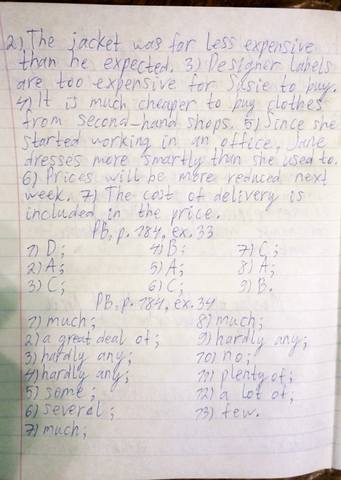 2) The jacket was far less expensive
than he expected. 3) Designer labels
are too expensive for Susie to buy.
4) It is much cheaper to buy clothes
from second-hand shops. 5) Since she
started working in an office, Jane
dresses more smartly than she used to.
6) Prices will be more reduced next
week. 7) The cost of delivery is
included in the price.
PB, p. 184, ex. 33
1) D; 4) B; 7) C;
2) A; 5) A; 8) A;
3) C; 6) C; 9) B.
PB, p. 184, ex. 34
1) much; 8) much;
2) a great deal of; 9) hardly any;
3) hardly any; 10) no;
4) hardly any; 11) plenty of;
5) some; 12) a lot of;
6) several; 13) few.
7) much;